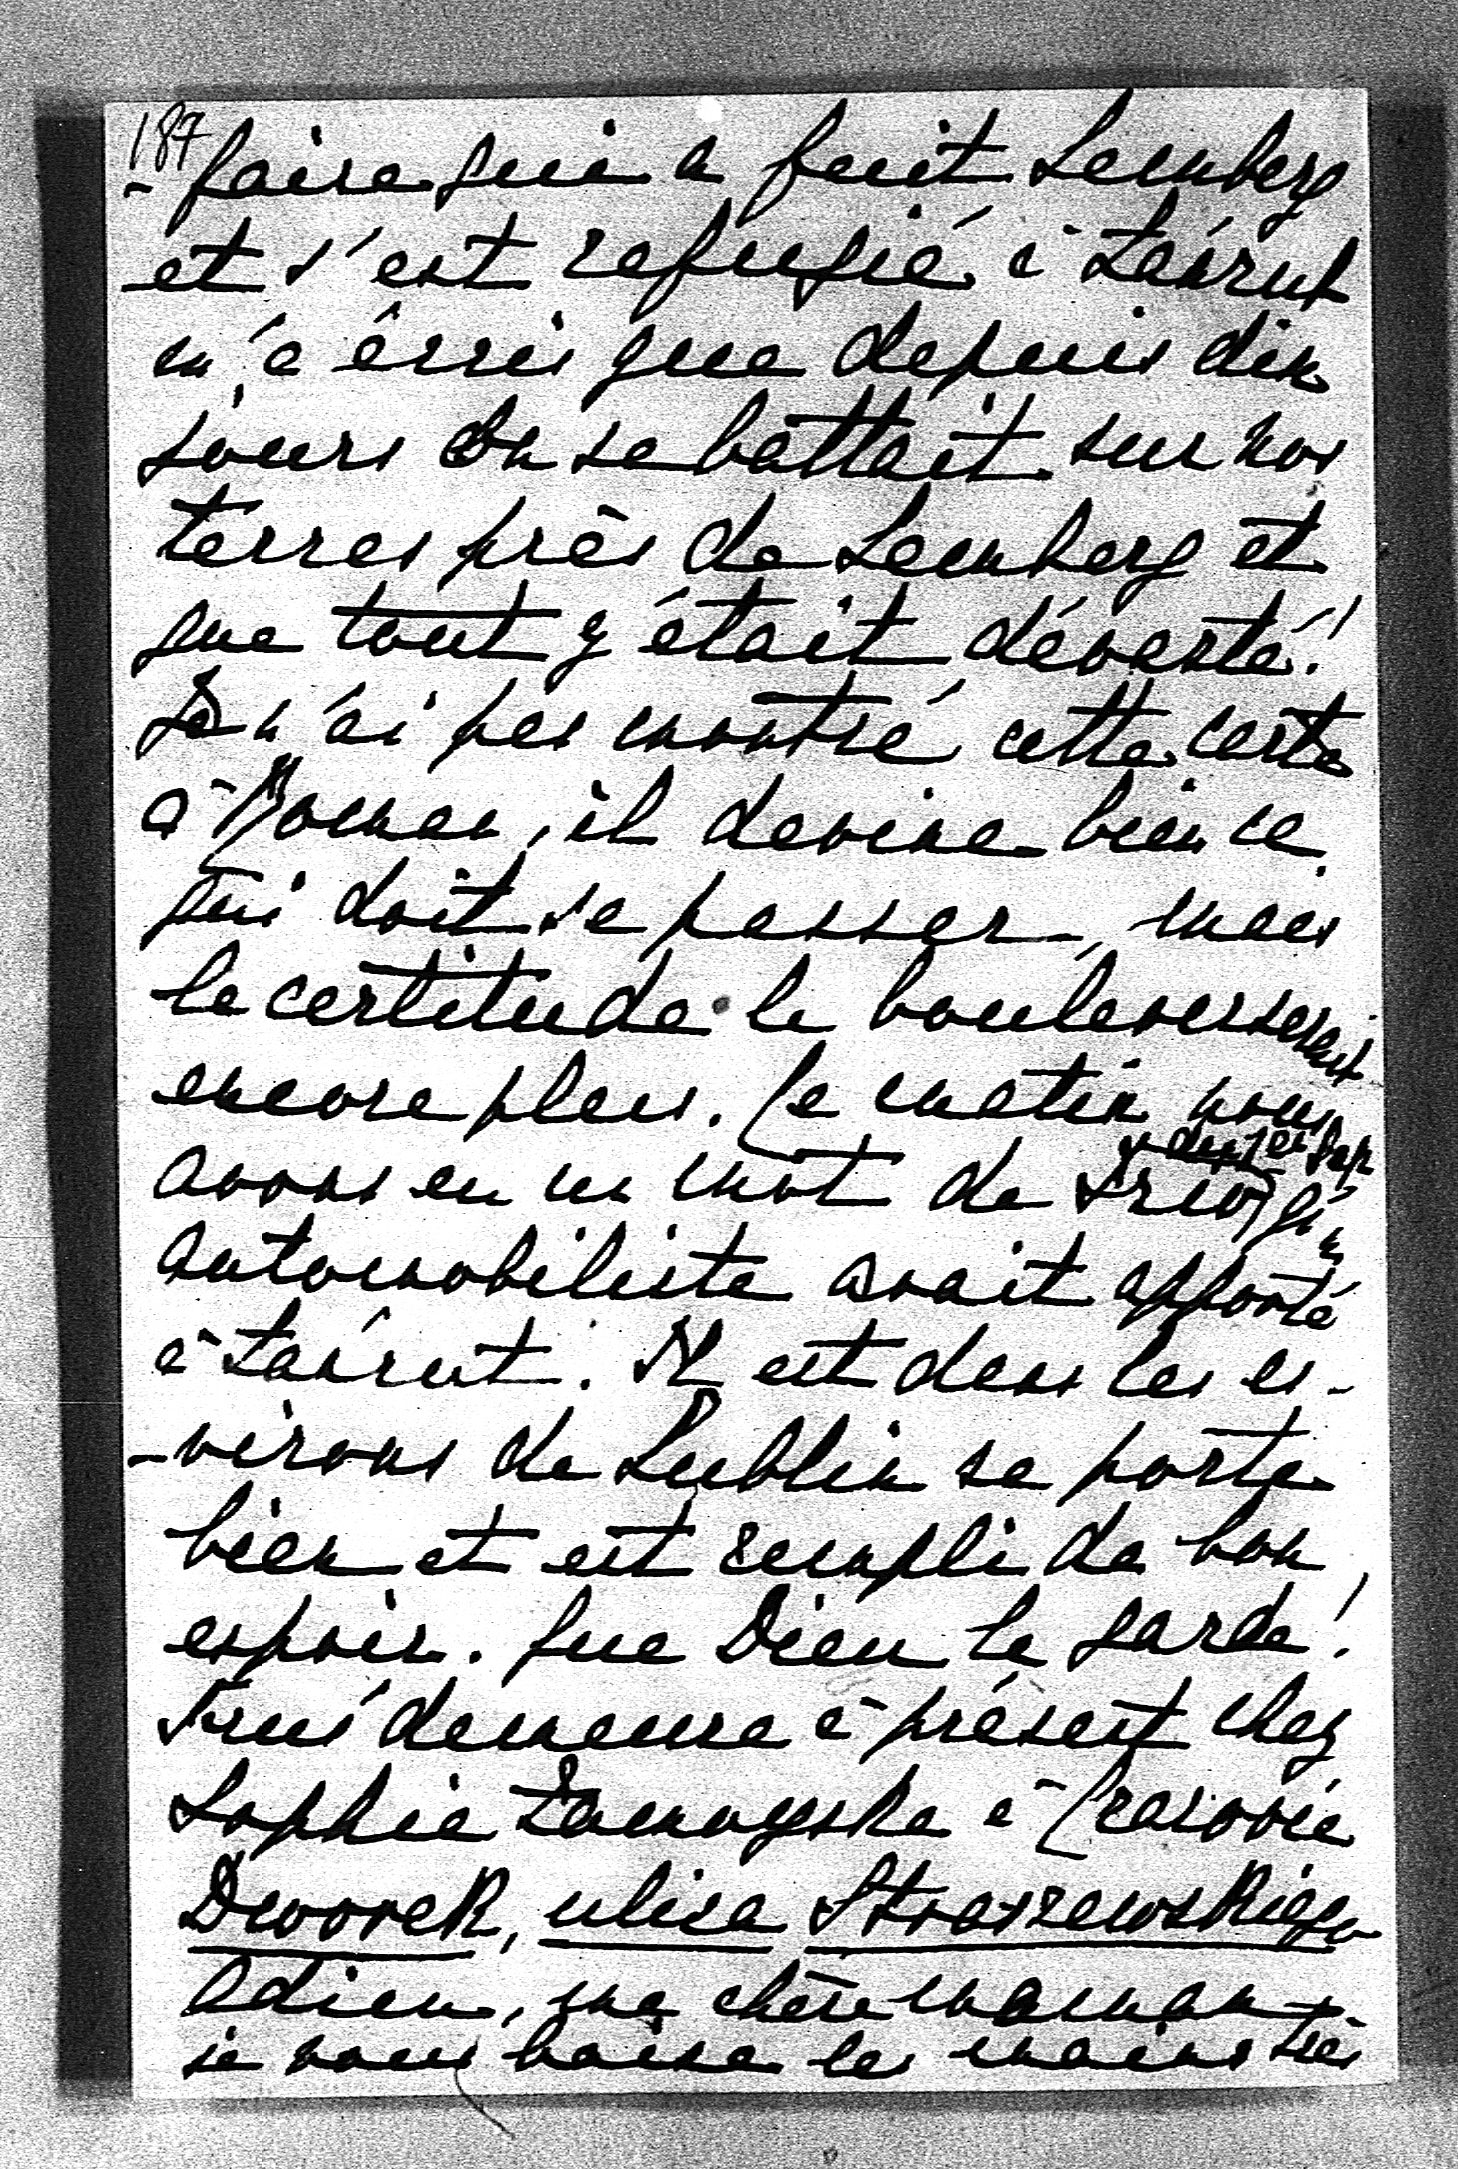 187
- faire qui a fuit Lemberg
et s'est refugié à Łańcut
m'a écris que depuis dix
jours on se battait sur nos
terres près de Lemberg et
que tout y était dévasté!
Je n'ai pas montré cette carte
à Roman, il devine bien ce
qui doit se passer, mais
la certitude le bouleverserait
encore plus. Ce matin nous
avons eu un mot de
automobiliste avait apporté
à Łańcut. Il est dans les en-
-virons de Lublin se porte
bien et est rempli de bon
espoir. Que Dieu le garde!
demeure à présent chez
Sophie Zamoyska à Cracovie
Dworek, ulica Straszewskiego
Adieu, ma chère maman
je vous baise les mains très